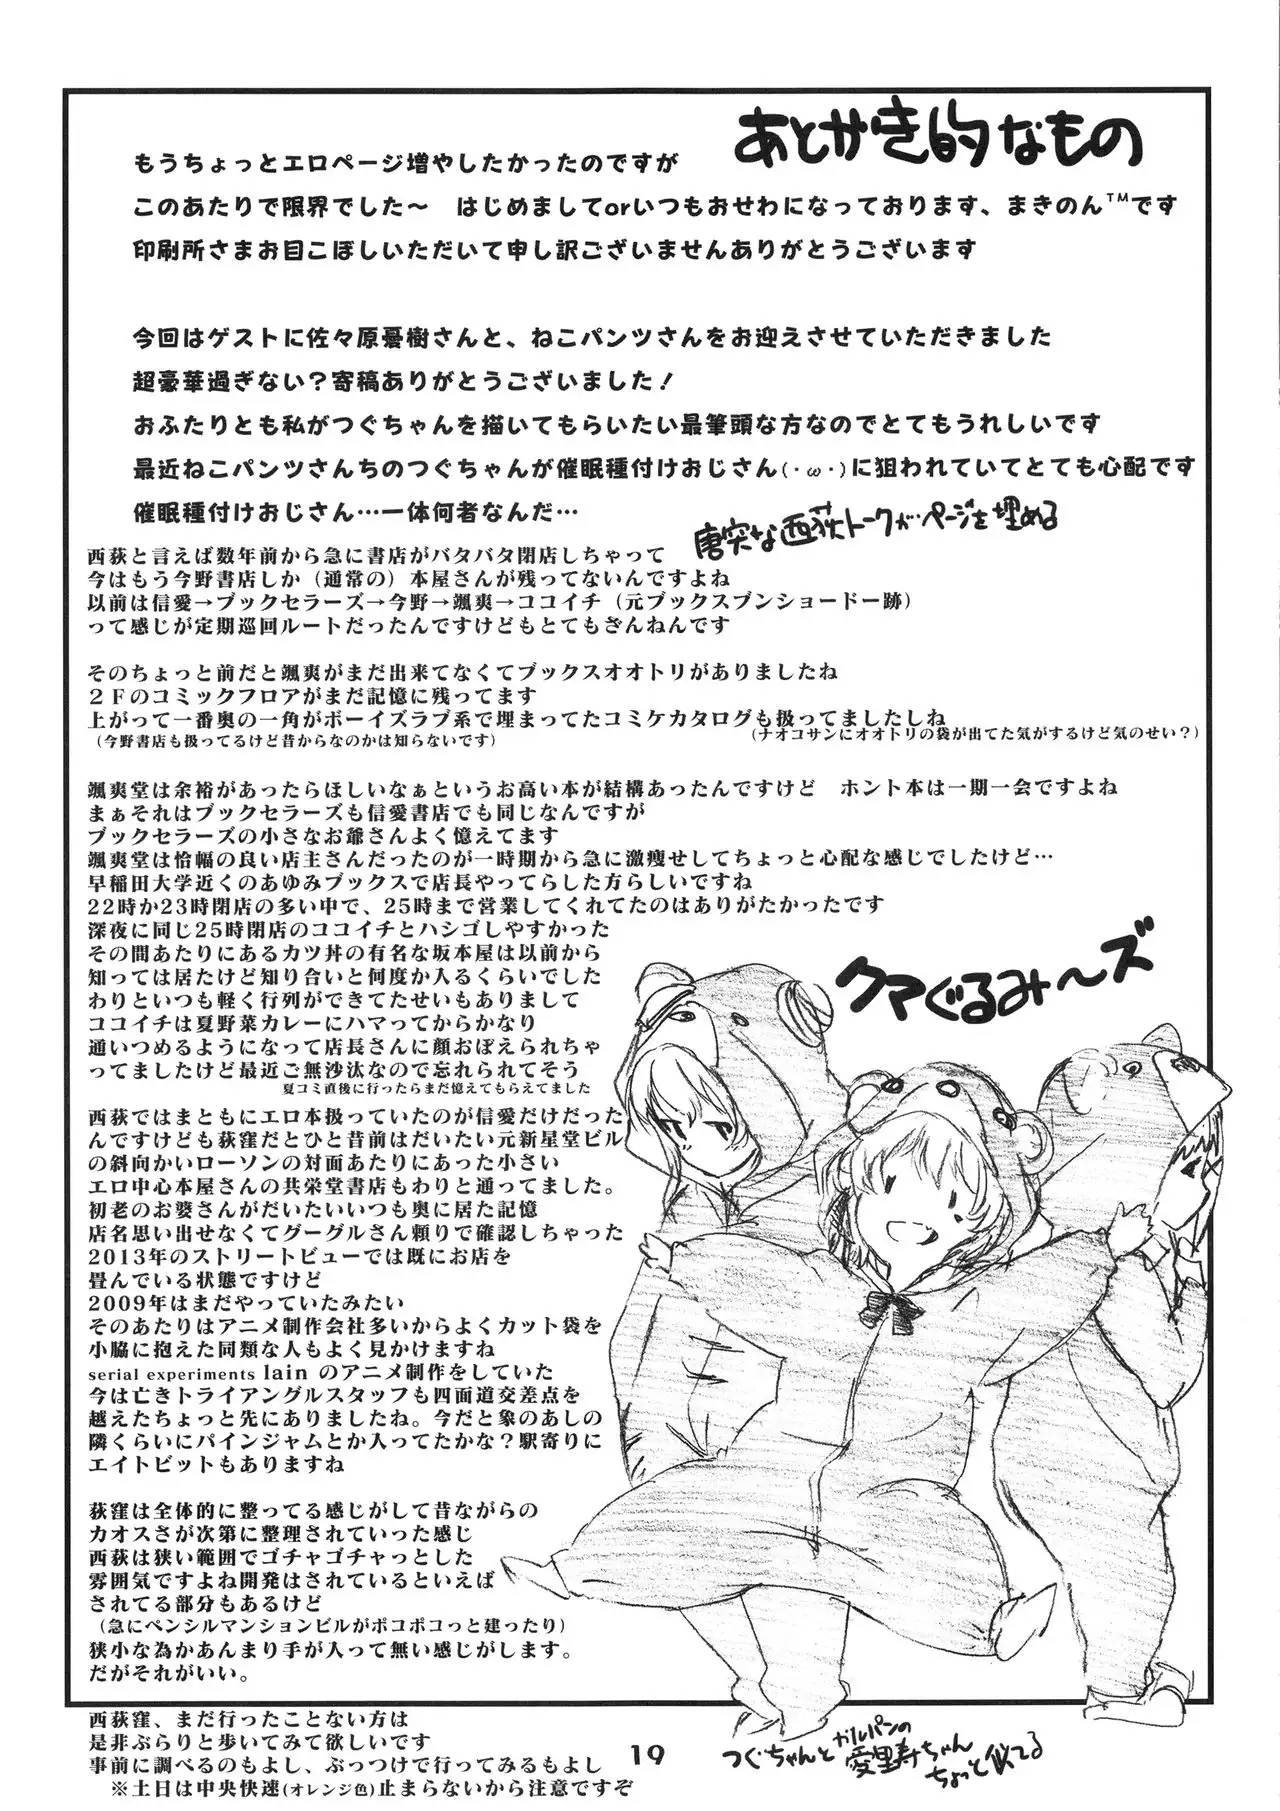 あとがき的なもの
もうちょっとエロページ増やしたかったのですが
このあたりで限界でした～　はじめましてorいつもおせわになっております、まきのん™です
印刷所さまお目こぼしいただいて申し訳ございませんありがとうございます
今回はゲストに佐々原憂樹さんと、ねこパンツさんをお迎えさせていただきました
超豪華過ぎない？寄稿ありがとうございました！
おふたりとも私がつぐちゃんを描いてもらいたい最筆頭な方なのでとてもうれしいです
最近ねこパンツさんちのつぐちゃんが催眠種付けおじさん(・ω・)に狙われていてとても心配です
催眠種付けおじさん…一体何者なんだ…
唐突な西荻トークがページを埋める
西荻と言えば数年前から急に書店がバタバタ閉店しちゃって
今はもう今野書店しか（通常の）本屋さんが残ってないんですよね
以前は信愛→ブックセラーズ→今野→颯爽→ココイチ（元ブックスブンショードー跡）
って感じが定期巡回ルートだったんですけどもとてもざんねんです
そのちょっと前だと颯爽がまだ出来てなくてブックスオオトリがありましたね
２Ｆのコミックフロアがまだ記憶に残ってます
上がって一番奥の一角がボーイズラブ系で埋まってたコミケカタログも扱ってましたしね
（今野書店も扱ってるけど昔からなのかは知らないです）
（ナオコサンにオオトリの袋が出てた気がするけど気のせい？）
颯爽堂は余裕があったらほしいなぁというお高い本が結構あったんですけど　ホント本は一期一会ですよね
まぁそれはブックセラーズも信愛書店でも同じなんですが
ブックセラーズの小さなお爺さんよく憶えてます
颯爽堂は恰幅の良い店主さんだったのが一時期から急に激痩せしてちょっと心配な感じでしたけど…
早稲田大学近くのあゆみブックスで店長やってらした方らしいですね
22時か23時閉店の多い中で、25時まで営業してくれてたのはありがたかったです
深夜に同じ25時閉店のココイチとハシゴしやすかった
その間あたりにあるカツ丼の有名な坂本屋は以前から
知っては居たけど知り合いと何度か入るくらいでした
わりといつも軽く行列ができてたせいもありまして
ココイチは夏野菜カレーにハマってからかなり
通いつめるようになって店長さんに顔おぼえられちゃ
ってましたけど最近ご無沙汰なので忘れられてそう
夏コミ直後に行ったらまだ憶えてもらえてました
クマぐるみ～ズ
西荻ではまともにエロ本扱っていたのが信愛だけだった
んですけども荻窪だとひと昔前はだいたい元新星堂ビル
の斜向かいローソンの対面あたりにあった小さい
エロ中心本屋さんの共栄堂書店もわりと通ってました。
初老のお婆さんがだいたいいつも奥に居た記憶
店名思い出せなくてグーグルさん頼りで確認しちゃった
2013年のストリートビューでは既にお店を
畳んでいる状態ですけど
2009年はまだやっていたみたい
そのあたりはアニメ制作会社多いからよくカット袋を
小脇に抱えた同類な人もよく見かけますね
serial experiments lain のアニメ制作をしていた
今は亡きトライアングルスタッフも四面道交差点を
越えたちょっと先にありましたね。今だと象のあしの
隣くらいにパインジャムとか入ってたかな？駅寄りに
エイトビットもありますね
荻窪は全体的に整ってる感じがして昔ながらの
カオスさが次第に整理されていった感じ
西荻は狭い範囲でゴチャゴチャっとした
雰囲気ですよね開発はされているといえば
されてる部分もあるけど
（急にペンシルマンションビルがポコポコっと建ったり）
狭小な為かあんまり手が入って無い感じがします。
だがそれがいい。
西荻窪、まだ行ったことない方は
是非ぶらりと歩いてみて欲しいです
事前に調べるのもよし、ぶっつけで行ってみるもよし
※土日は中央快速(オレンジ色)止まらないから注意ですぞ
19
つぐちゃんとガルパンの
愛里寿ちゃん
ちょっと似てる